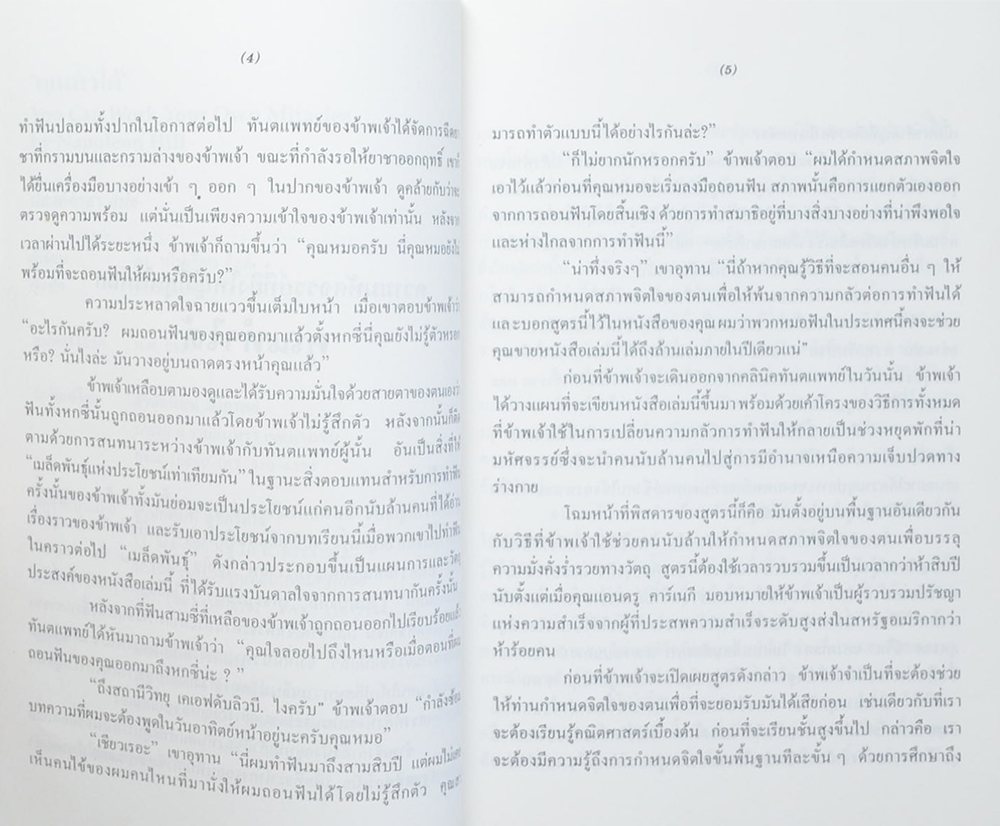 (4)
ทำฟันปลอมทั้งปากในโอกาสต่อไป ทันตแพทย์ของข้าพเจ้าได้จัดการฉีดยา
ชาที่กรามบนและกรามล่างของข้าพเจ้า ขณะที่กำลังรอให้ยาชาออกฤทธิ์
ได้ยื่นเครื่องมือบางอย่างเข้า ๆ ออก ๆ ในปากของข้าพเจ้า ดูคล้ายกับว่าจะ
ตรวจดูความพร้อม แต่นั่นเป็นเพียงความเข้าใจของข้าพเจ้าเท่านั้น หลังจาก
เวลาผ่านไปได้ระยะหนึ่ง ข้าพเจ้าก็ถามขึ้นว่า “คุณหมอครับ นี่คุณหมอยังไม่
พร้อมที่จะถอนฟันให้ผมหรือครับ?”
ความประหลาดใจฉายแววขึ้นเต็มใบหน้า เมื่อเขาตอบข้าพเจ้าว่า
“อะไรกันครับ? ผมถอนฟันของคุณออกมาแล้วตั้งหกซี่นี่คุณยังไม่รู้ตัวหรอก
หรือ? นั่นไงล่ะ มันวางอยู่บนถาดตรงหน้าคุณแล้ว”
ข้าพเจ้าเหลือบตามองดูและได้รับความมั่นใจด้วยสายตาของตนเองว่า
ฟันทั้งหกซี่นั้นถูกถอนออกมาแล้วโดยข้าพเจ้าไม่รู้สึกตัว หลังจากนั้นก็ติด
ตามด้วยการสนทนาระหว่างข้าพเจ้ากับทันตแพทย์ผู้นั้น อันเป็นสิ่งที่ให้
“เมล็ดพันธุ์แห่งประโยชน์เท่าเทียมกัน” ในฐานะสิ่งตอบแทนสำหรับการทำฟัน
ครั้งนั้นของข้าพเจ้าทั้งมันย่อมจะเป็นประโยชน์แก่คนอีกนับล้านคนที่ได้อ่าน
เรื่องราวของข้าพเจ้า และรับเอาประโยชน์จากบทเรียนนี้เมื่อพวกเขาไปทำฟัน
ในคราวต่อไป “เมล็ดพันธุ์” ดังกล่าวประกอบขึ้นเป็นแผนการและวัตถุ
ประสงค์ของหนังสือเล่มนี้ ที่ได้รับแรงบันดาลใจจากการสนทนากันครั้งนั้น
หลังจากที่ฟันสามซี่ที่เหลือของข้าพเจ้าถูกถอนออกไปเรียบร้อยแล้ว
ทันตแพทย์ได้หันมาถามข้าพเจ้าว่า “คุณใจลอยไปถึงไหนหรือเมื่อตอนที่ผม
ถอนฟันของคุณออกมาถึงหกซี่น่ะ ?”
“ถึงสถานีวิทยุ เคเอฟดับลิวบี. ไงครับ” ข้าพเจ้าตอบ “กำลังซ้อม
บทความที่ผมจะต้องพูดในวันอาทิตย์หน้าอยู่นะครับคุณหมอ”
“เชียวเรอะ” เขาอุทาน “นี่ผมทำฟันมาถึงสามสิบปี แต่ผมไม่เคย
เห็นคนไข้ของผมคนไหนที่มานั่งให้ผมถอนฟันได้โดยไม่รู้สึกตัว
(5)
มารถทำตัวแบบนี้ได้อย่างไรกันล่ะ?”
“ก็ไม่ยากนักหรอกครับ” ข้าพเจ้าตอบ “ผมได้กำหนดสภาพจิตใจ
เอาไว้แล้วก่อนที่คุณหมอจะเริ่มลงมือถอนฟัน สภาพนั้นคือการแยกตัวเองออก
จากการถอนฟันโดยสิ้นเชิง ด้วยการทำสมาธิอยู่ที่บางสิ่งบางอย่างที่น่าพึงพอใจ
และห่างไกลจากการทำฟันนี้”
“น่าทึ่งจริงๆ” เขาอุทาน “นี่ถ้าหากคุณรู้วิธีที่จะสอนคนอื่น ๆ ให้
สามารถกำหนดสภาพจิตใจของตนเพื่อให้พ้นจากความกลัวต่อการทำฟันได้
และบอกสูตรนี้ไว้ในหนังสือของคุณ ผมว่าพวกหมอฟันในประเทศนี้คงจะช่วย
คุณขายหนังสือเล่มนี้ได้ถึงล้านเล่มภายในปีเดียวแน่”
ก่อนที่ข้าพเจ้าจะเดินออกจากคลินิคทันตแพทย์ในวันนั้น ข้าพเจ้า
ได้วางแผนที่จะเขียนหนังสือเล่มนี้ขึ้นมา พร้อมด้วยเค้าโครงของวิธีการทั้งหมด
ที่ข้าพเจ้าใช้ในการเปลี่ยนความกลัวการทำฟันให้กลายเป็นช่วงหยุดพักที่น่า
มหัศจรรย์ซึ่งจะนำคนนับล้านคนไปสู่การมีอำนาจเหนือความเจ็บปวดทาง
ร่างกาย
โฉมหน้าที่พิสดารของสูตรนี้ก็คือ มันตั้งอยู่บนพื้นฐานอันเดียวกัน
กับวิธีที่ข้าพเจ้าใช้ช่วยคนนับล้านให้กำหนดสภาพจิตใจของตนเพื่อบรรลุ
ความมั่งคั่งร่ำรวยทางวัตถุ สูตรนี้ต้องใช้เวลารวบรวมขึ้นเป็นเวลากว่าห้าสิบปี
นับตั้งแต่เมื่อคุณแอนดรู คาร์เนกี มอบหมายให้ข้าพเจ้าเป็นผู้รวบรวมปรัชญา
แห่งความสำเร็จจากผู้ที่ประสพความสำเร็จระดับสูงส่งในสหรัฐอเมริกากว่า
ห้าร้อยคน
ก่อนที่ข้าพเจ้าจะเปิดเผยสูตรดังกล่าว ข้าพเจ้าจำเป็นที่จะต้องช่วย
ให้ท่านกำหนดจิตใจของตนเพื่อที่จะยอมรับมันได้เสียก่อน เช่นเดียวกับที่เรา
จะต้องเรียนรู้คณิตศาสตร์เบื้องต้น ก่อนที่จะเรียนชั้นสูงขึ้นไป กล่าวคือ เรา
จะต้องมีความรู้ถึงการกำหนดจิตใจขั้นพื้นฐานทีละขั้น ๆ ด้วยการศึกษาถึง